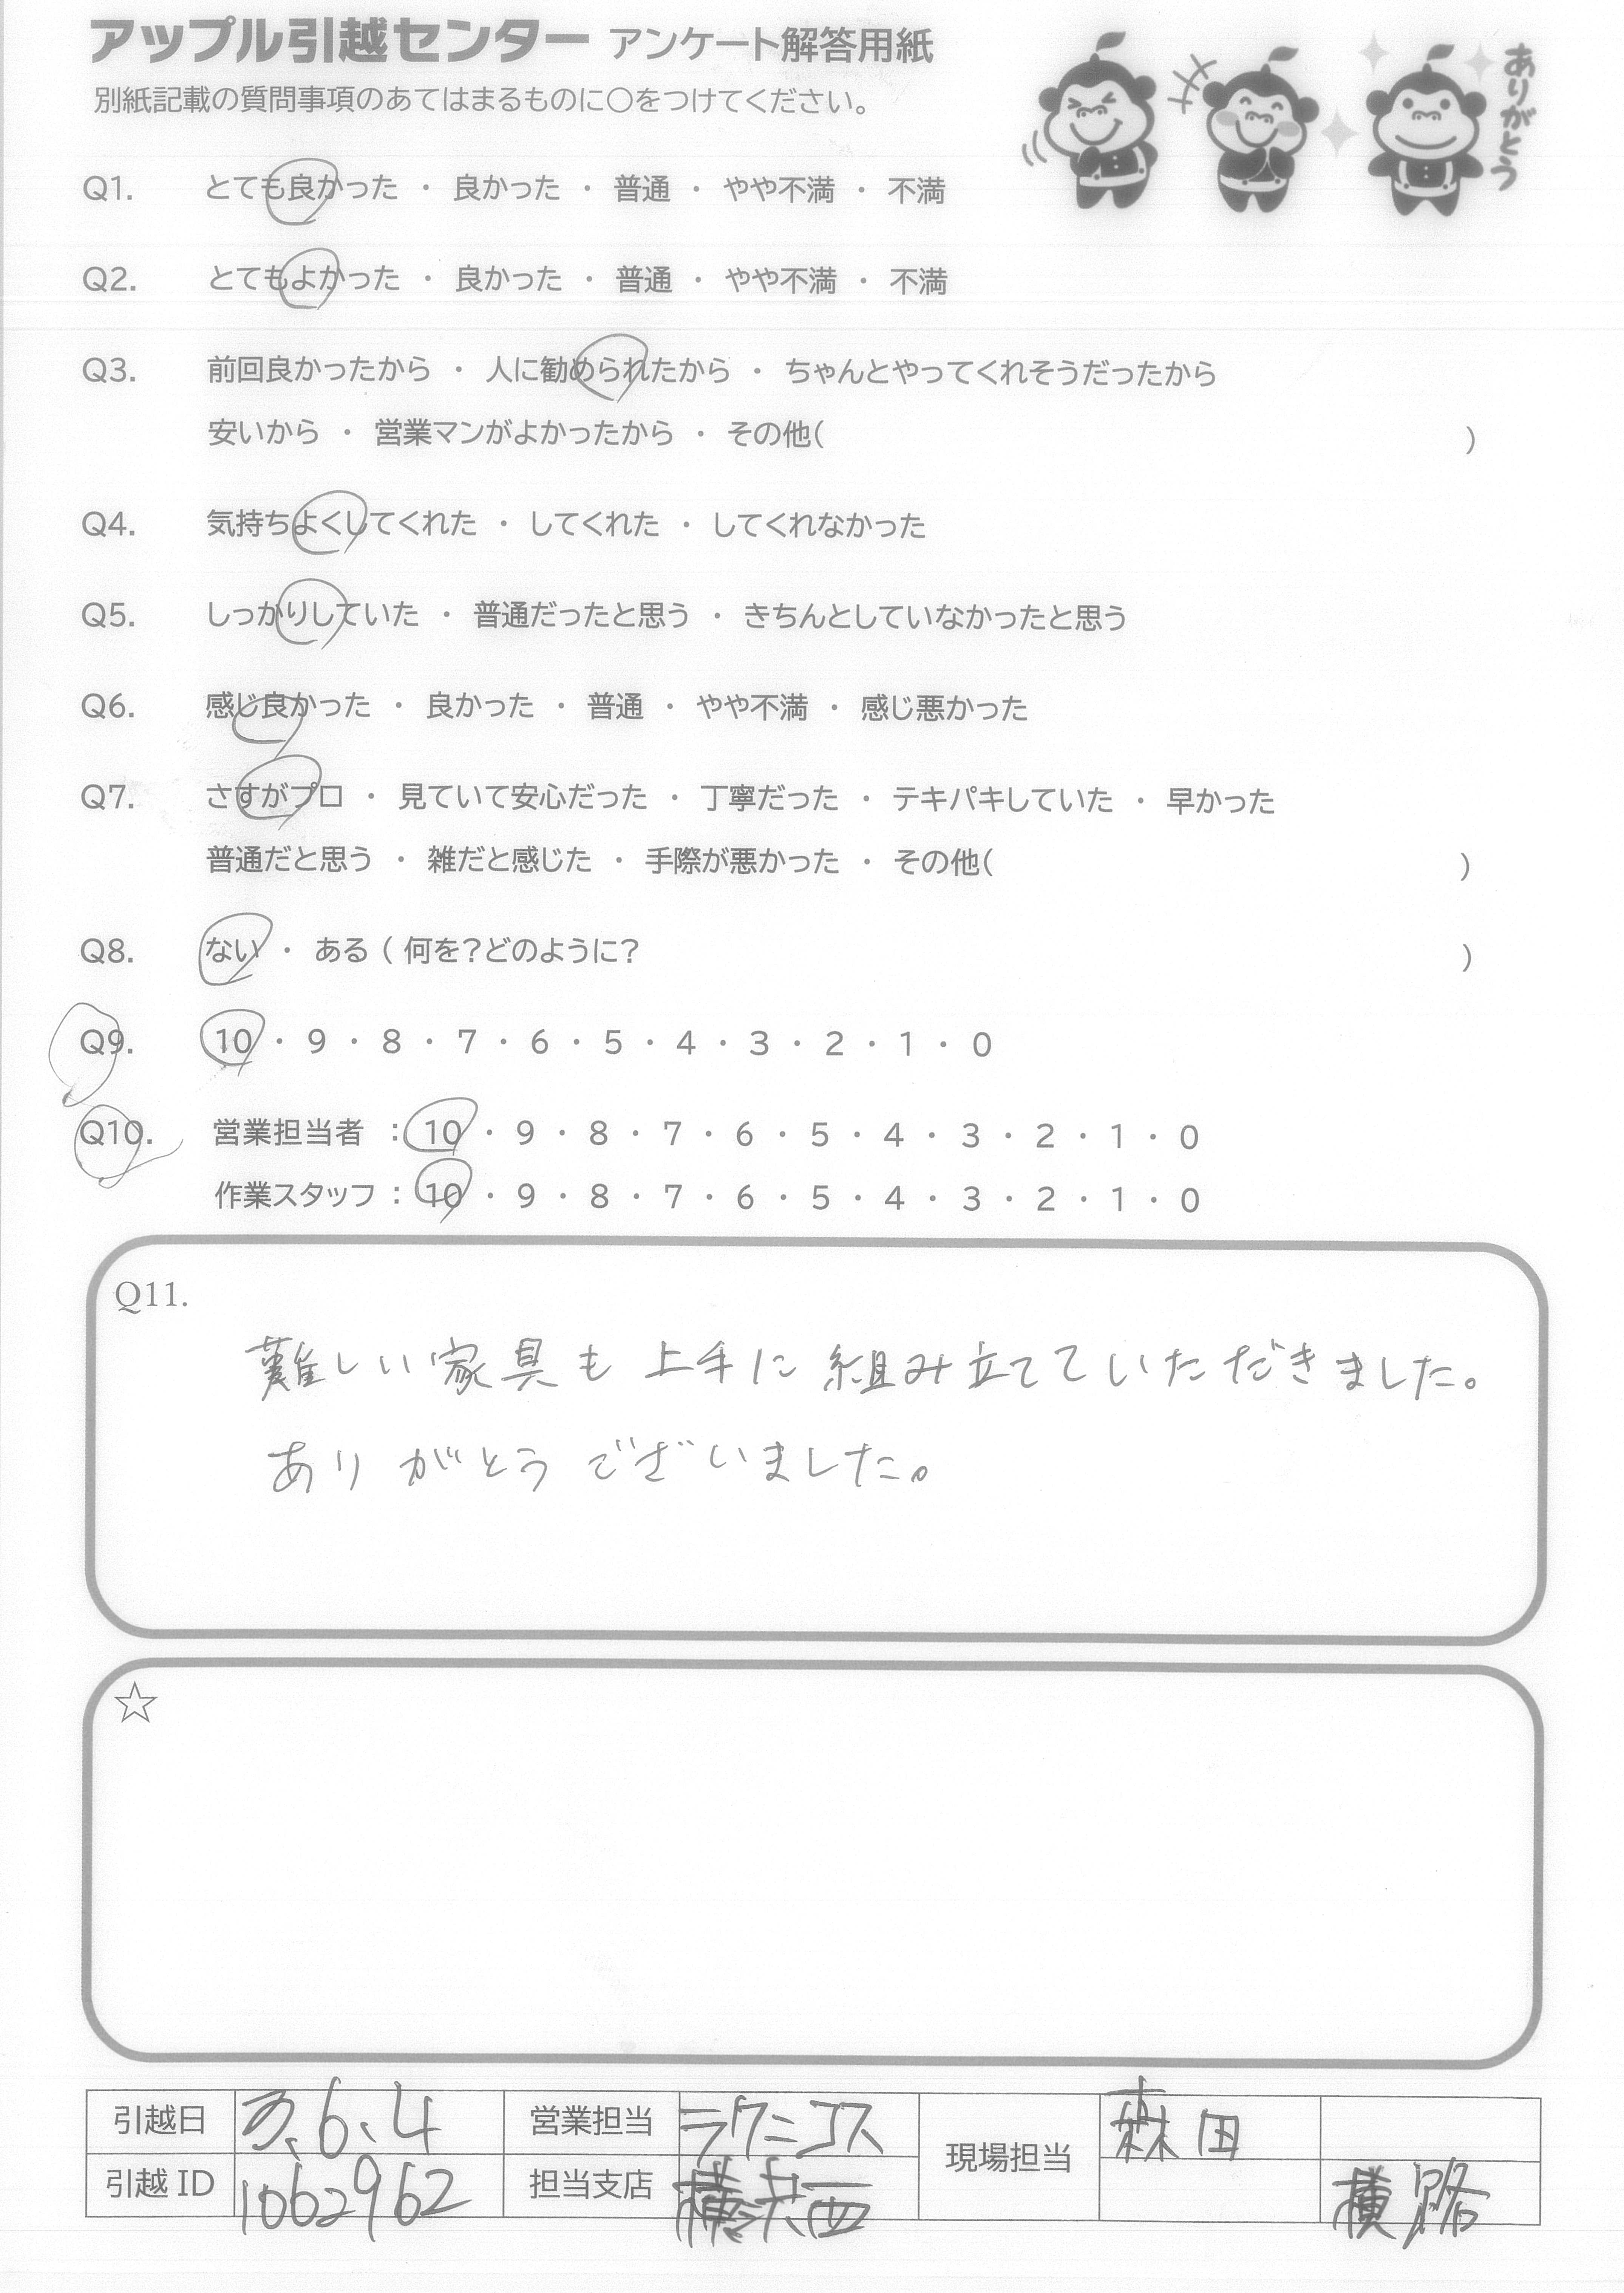 アップル引越センター アンケート解答用紙
別紙記載の質問事項のあてはまるものに○をつけてください。
ありがとう
Q1. とても良かった ・ 良かった ・ 普通 ・ やや不満 ・ 不満
Q2. とてもよかった ・ 良かった ・ 普通 ・ やや不満 ・ 不満
Q3. 前回良かったから ・ 人に勧められたから ・ ちゃんとやってくれそうだったから
安いから ・ 営業マンがよかったから ・ その他( )
Q4. 気持ちよくしてくれた ・ してくれた ・ してくれなかった
Q5. しっかりしていた ・ 普通だったと思う ・ きちんとしていなかったと思う
Q6. 感じ良かった ・ 良かった ・ 普通 ・ やや不満 ・ 感じ悪かった
Q7. さすがプロ ・ 見ていて安心だった ・ 丁寧だった ・ テキパキしていた ・ 早かった
普通だと思う ・ 雑だと感じた ・ 手際が悪かった ・ その他( )
Q8. ない ・ ある ( 何を?どのように? )
Q9. 10 ・ 9 ・ 8 ・ 7 ・ 6 ・ 5 ・ 4 ・ 3 ・ 2 ・ 1 ・ 0
Q10. 営業担当者 : 10 ・ 9 ・ 8 ・ 7 ・ 6 ・ 5 ・ 4 ・ 3 ・ 2 ・ 1 ・ 0
作業スタッフ : 10 ・ 9 ・ 8 ・ 7 ・ 6 ・ 5 ・ 4 ・ 3 ・ 2 ・ 1 ・ 0
Q11.
難しい家具も上手に組み立てていただきました。
ありがとうございました。
☆
引越日 6、4 営業担当 ラクニコス 現場担当 森田
引越 ID 1062962 担当支店 横浜西 横路